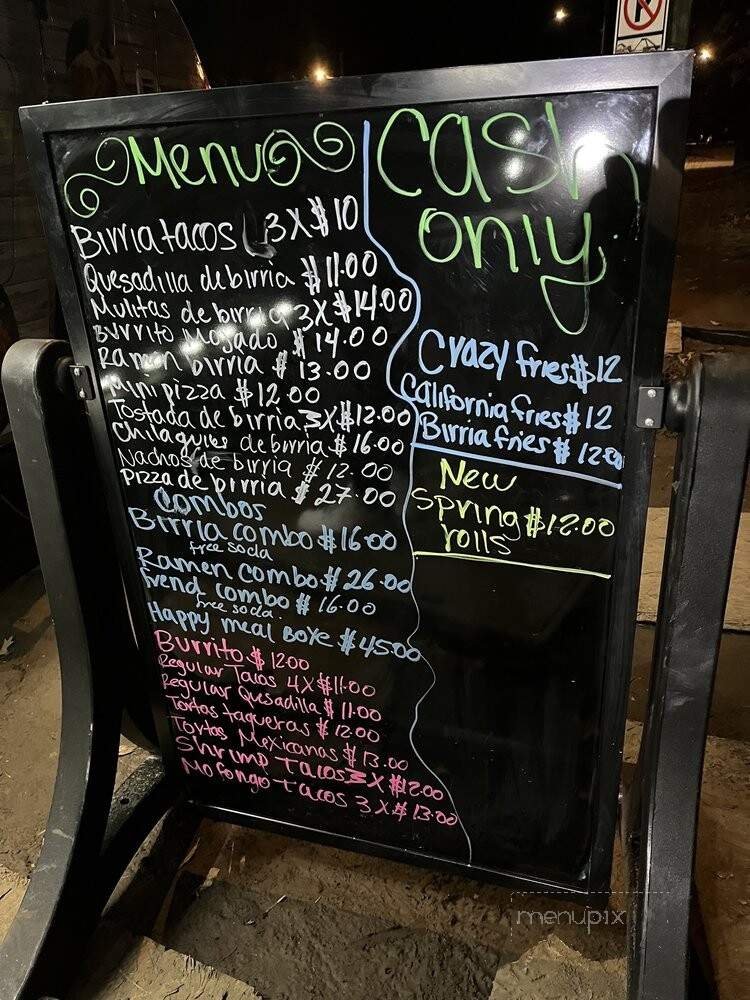 Menu
Birria tacos 3X$10
Quesadilla de birria $11.00
Mulitas de birria 3X$14.00
Burrito Mojado $14.00
Ramen birria $13.00
Mini pizza $12.00
Tostada de birria 3X$12.00
Chilaquiles de birria $16.00
Nachos de birria $12.00
Pizza de birria $27.00
Combos
Birria combo $16.00
free soda
Ramen combo $26.00
combo $16.00
free soda
Happy meal Boxe $45.00
Burrito $12.00
Regular Tacos 4X$11.00
Regular Quesadilla $11.00
Tortas taqueras $12.00
Tortas Mexicanas $13.00
Shrimp Tacos 3X$12.00
Mofongo tacos 3X$13.00
Cash
only.
Crazy fries $12
California fries $12
Birria fries $12.00
New
Spring $12.00
rolls
menupix